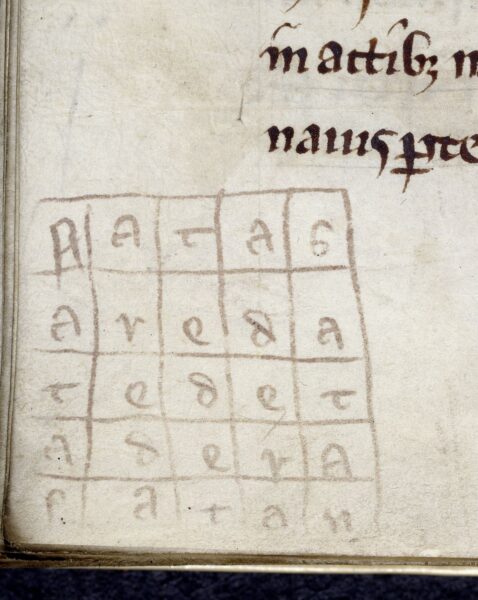 in actibꝫ
nauis ꝑte
N A T A S
A r e d A
T e d e T
A d e r A
S A T A N